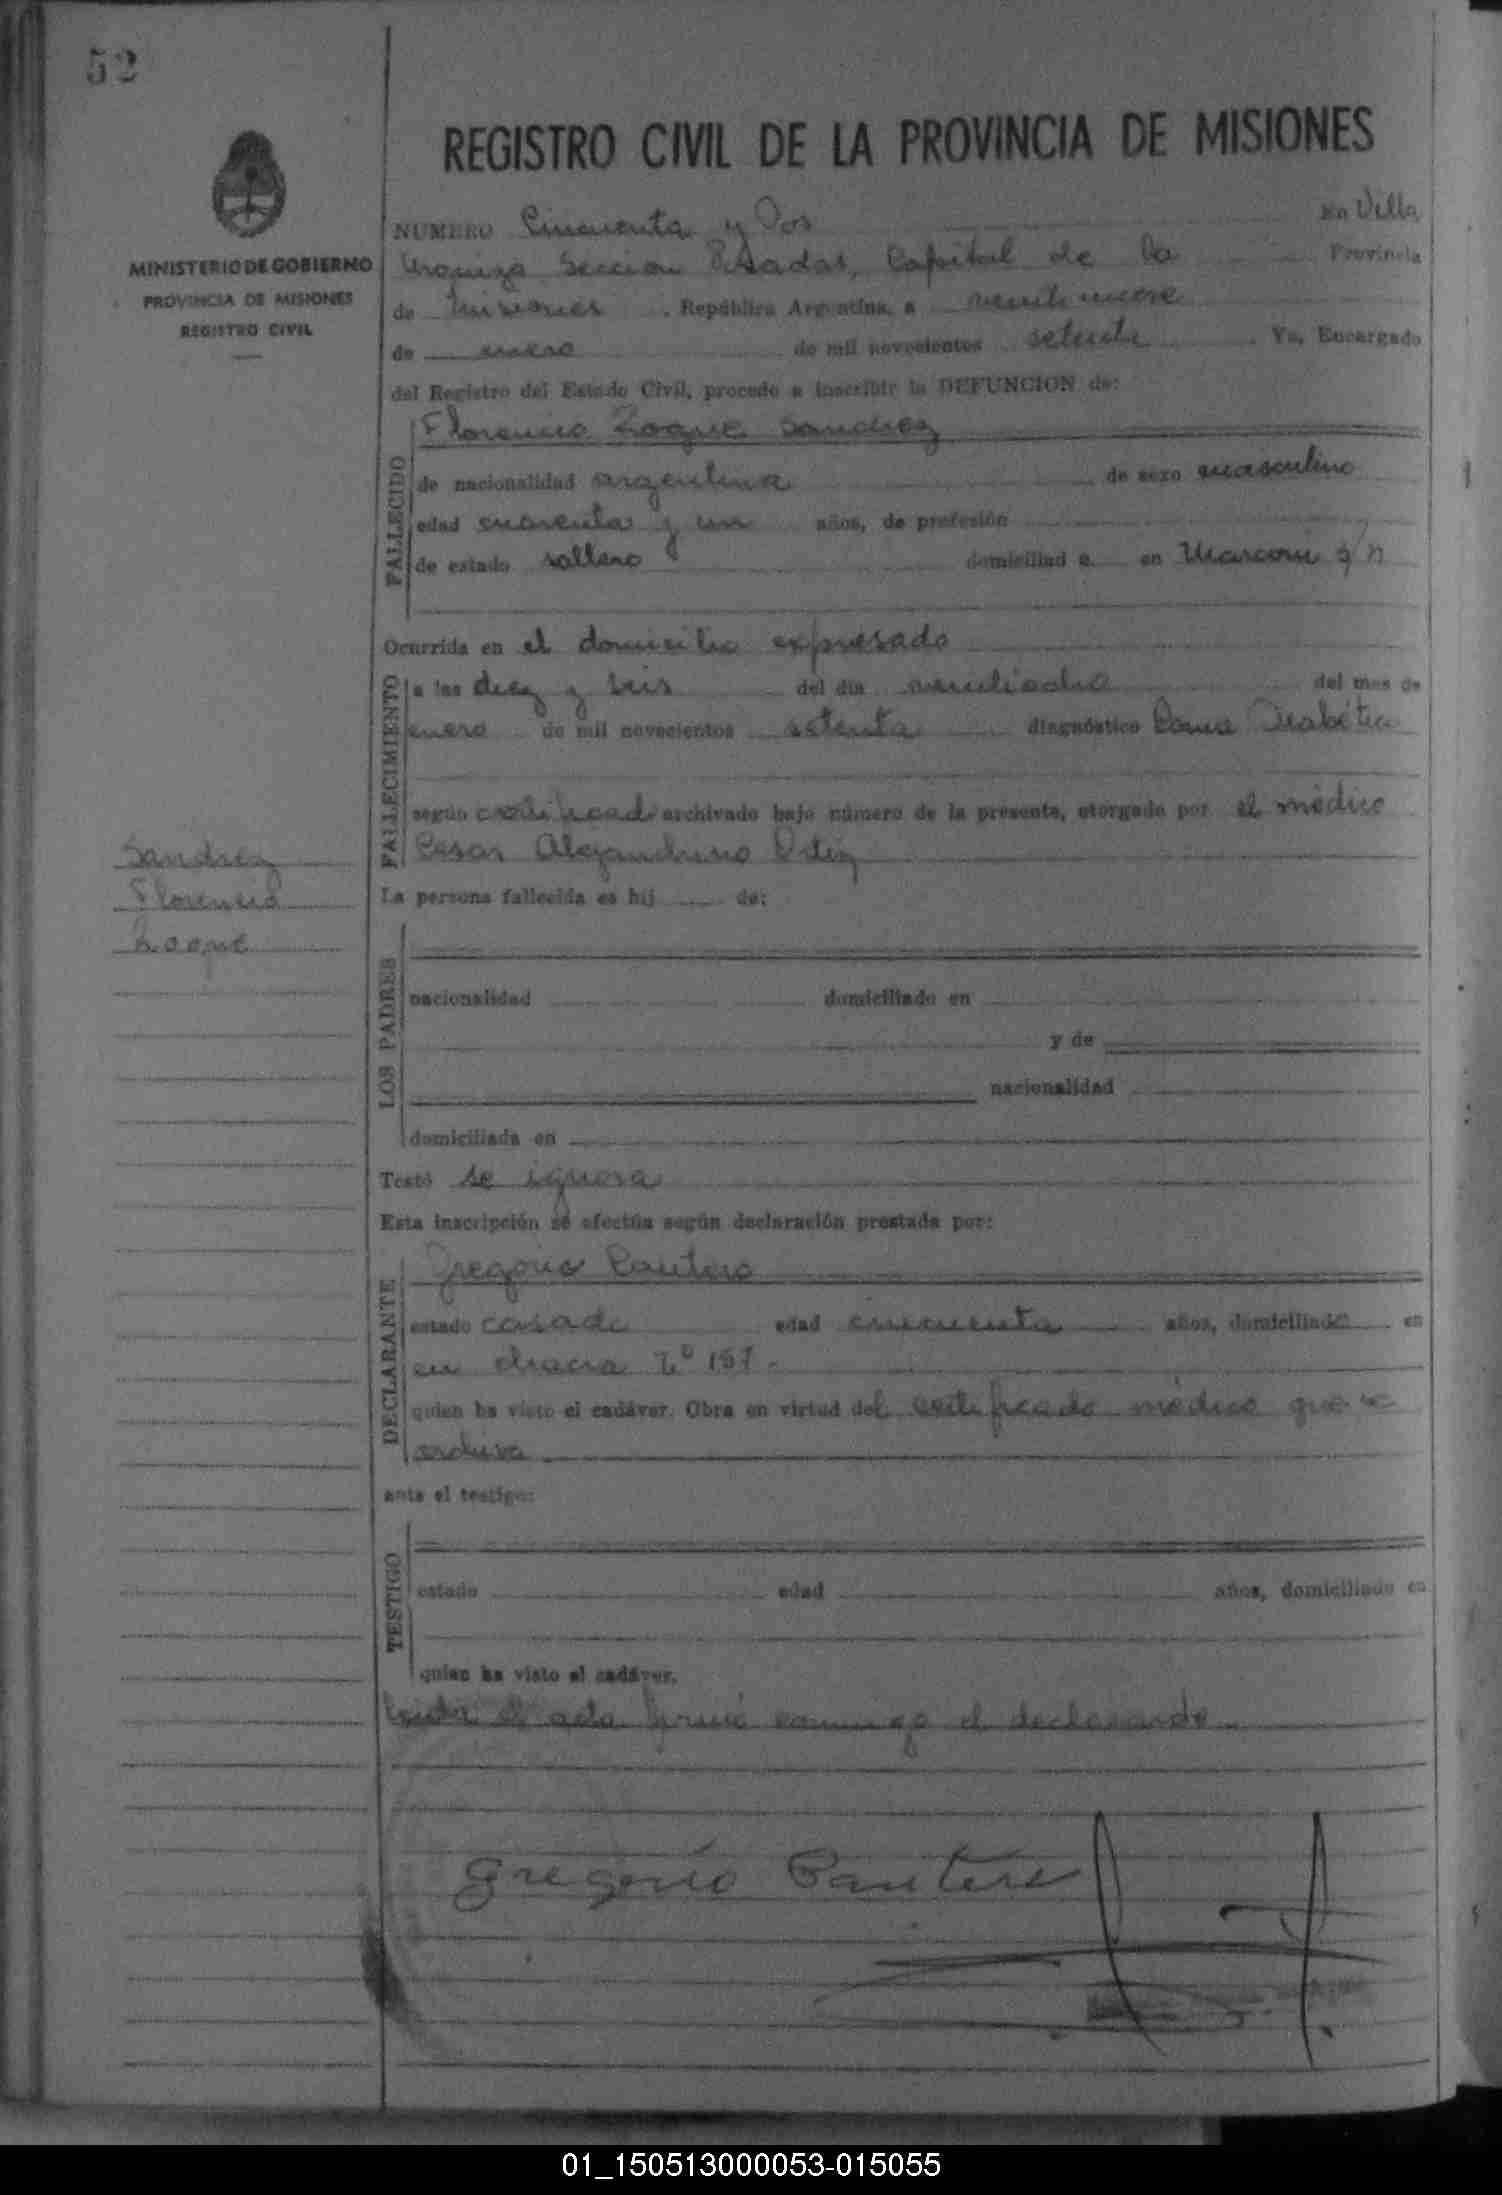 52
REGISTRO CIVIL DE LA PROVINCIA DE MISIONES
MINISTERIO DE GOBIERNO
PROVINCIA DE MISIONES
REGISTRO CIVIL
NUMERO Cincuenta y Dos En Villa
Urquiza Seccion Posadas, Capital de la Provincia
de Misiones República Argentina, a veintinueve
de enero de mil novecientos setenta Yo, Encargado
del Registro del Estado Civil, procedo a inscribir la DEFUNCION de:
Florencio Roque Sanchez
FALLECIDO
de nacionalidad argentina de sexo masculino
edad cuarenta y un años, de profesión
de estado soltero domiciliad o en Marconi s/n
Ocurrida en el domicilio expresado
FALLECIMIENTO
a las diez y seis del día veintiocho del mes de
enero de mil novecientos setenta diagnóstico Coma Diabética
según certificado archivado bajo número de la presente, otorgado por el médico
Cesar Alejandrino Ortiz
Sanchez
Florencio
Roque
La persona fallecida es hij de:
LOS PADRES
nacionalidad domiciliado en
y de
nacionalidad
domiciliada en
Testó se ignora
Esta inscripción se efectúa según declaración prestada por:
DECLARANTE
Gregorio Cantero
estado casado edad cincuenta años, domiciliado en
en chacra Nº 157.
quien ha visto el cadáver. Obra en virtud del certificado médico que se
archiva
ante el testigo:
TESTIGO
estado edad años, domiciliado en
quien ha visto el cadáver.
Leida el acta firmó conmigo el declarante
Gregorio Cantero
01_150513000053-015055